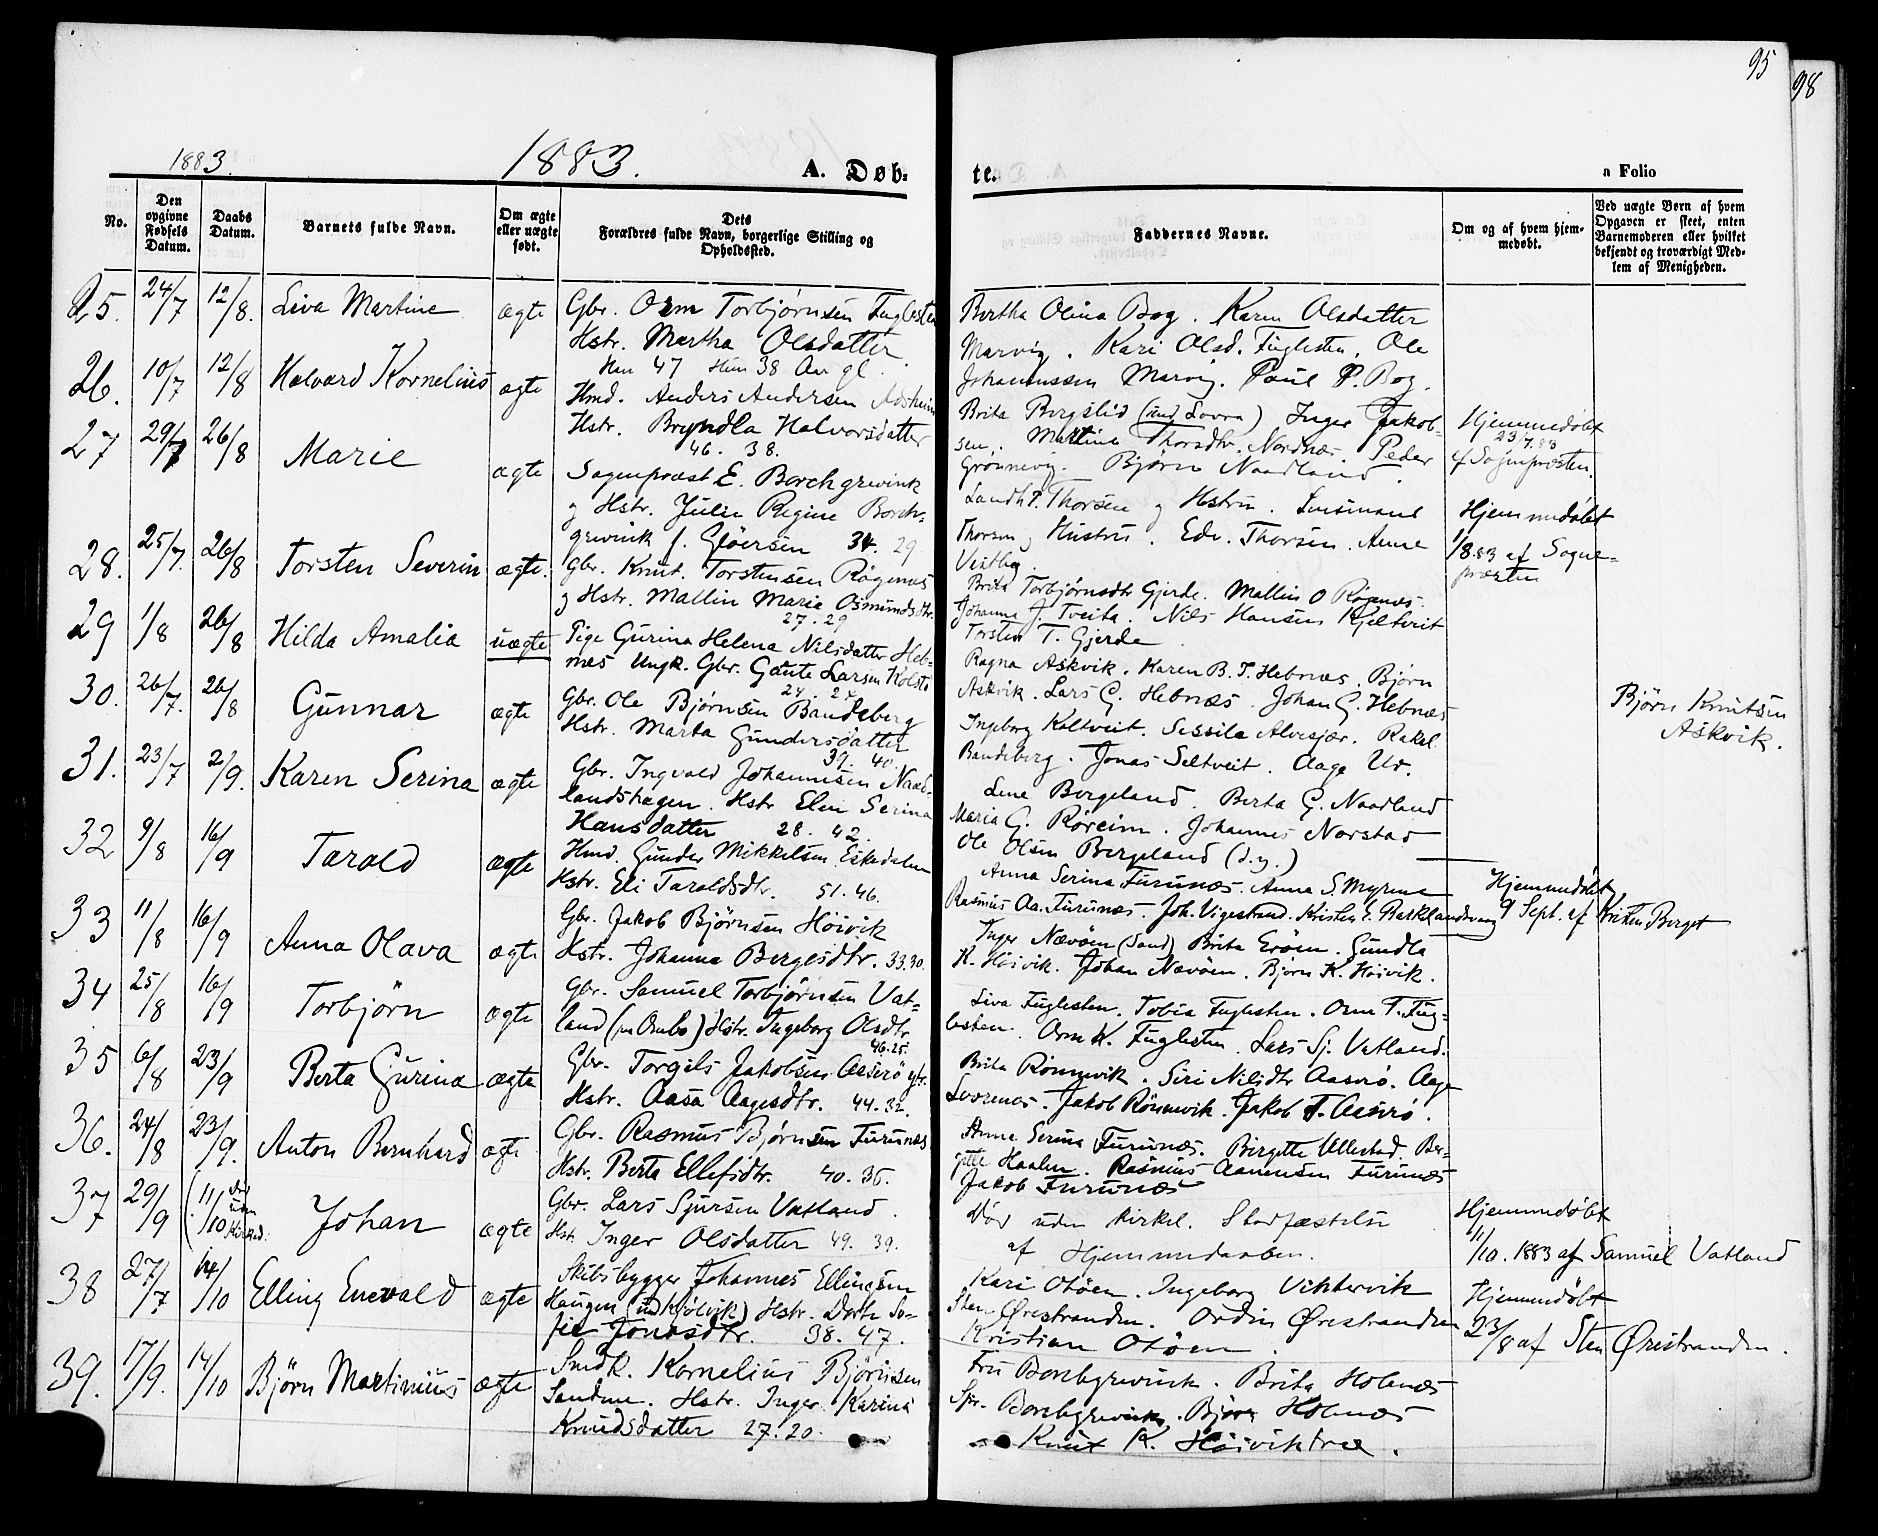 95
98
1883.
1883.
A. Døb-
te.
a Folio
No.
Den opgivne Fødsels Datum.
Daabs Datum.
Barnets fulde Navn.
Om ægte eller uægte født.
Dets Forældres fulde Navn, borgerlige Stilling og Opholdssted.
Faddernes Navne.
Om og af hvem hjemmedøbt.
Ved uægte Børn af hvem Opgaven er skeet, enten Barnemoderen eller hvilket bekjendt og troværdigt Medlem af Menigheden.
25. 24/7 12/8. Liva Martine ægte Gbr. Orm Torbjørnsen Fuglesten
Hstr. Martha Olsdatter
Han 47 Hun 38 Aar gl.
Bertha Olina Bog. Karen Olsdatter
Marvig. Kari Olsd. Fuglesten. Ole
Johannessen Marvig. Paul P. Bog.
26. 10/7 12/8 Halvard Kornelius ægte Hmd. Anders Andersen
Hstr. Bryndla Halvorsdatter
46. 38.
Brita Bergslid (ind Lovra) Inger Jakob-
sen. Martine Thorsdtr. Nordnes. Peder
Grønnevig. Bjørn Naadland.
Hjemmedøbt
23/7.83
af Sognepræsten
27 29/7 26/8 Marie ægte Sognepræst E. Borchgrevink
og Hstr. Julie Regine Borch-
grevink f. Gløersen 34. 29.
Landh. Thorsen og Hstru. Lensmand
Thorsen og Hustru. Edv. Thorsen. Anne
Vestbø.
Hjemmedøbt
1/8.83 af Sogne-
præsten
28. 25/7. 26/8 Torsten Severin ægte. Gbr. Knut. Torstensen Røgenes
og Hstr. Mallin Marie Osmundsdtr.
27. 29
Brita Torbjørnsdtr Gjerde. Mallin O Røgnes.
Johanna J. Tveita. Nils Hansen Kjeltveit
Torsten T. Gjerde
29 1/8 26/8 Hilda Amalia uægte Pige Gurina Helena Nilsdatter Heb-
nes Ungk. Gbr. Gaute Larsen Kolstø
24. 24
Ragna Askvik. Karen B. T. Hebnes. Bjørn
Askvik. Lars G. Hebnæs. Johan G. Hebnæs
Bjørn Knutsen
Askvik.
30. 26/7. 26/8 Gunnar ægte Gbr. Ole Bjørnsen Bandeberg
Hstr. Marta Gundersdatter
39. 40
Ingeborg Kaltveit. Sessila Alvesjær. Rakel
Bandeberg. Jonas Seltveit. Aage Ur.
31. 23/7 2/9. Karen Serina ægte Gbr. Ingvald Johannesen Naad-
landshagen. Hstr Elen Serina
Hansdatter 28. 42.
Lene Bergeland. Berta G. Naadland
Maria G. Røreim. Johannes Norstad
Ole Olsen Bergeland (d.y.)
32 9/8 16/9 Tarald ægte Hmd. Gunder Mikkelsen Eskedalen
Hstr. Eli Taraldsdtr. 51. 46.
Anna Serina Furunæs. Anna S Myrene
Rasmus Aa. Furunæs. Joh. Vigestrand. Kristen E. Barklandsvang
Hjemmedøbt
9 Sept. af Kristen Berget
33 11/8 16/9 Anna Olava ægte Gbr. Jakob Bjørnsen Høivik
Hstr. Johanna Bergesdtr. 33.30.
Inger Nævøen (Sand) Brita Erøen. Gundla
K. Høivik. Johan Nævøen. Bjørn K. Høivik.
34 25/8 16/9 Torbjørn ægte Gbr. Samuel Torbjørnsen Vat-
land (paa Ombo) Hstr. Ingeborg Olsdtr.
46.25.
Liva Fuglesten. Tobia Fuglesten. Orm T. Fug-
lesten. Orm K. Fuglesten. Lars Sj. Vatland.
35 6/8 23/9 Berta Gurina ægte Gbr. Torgils Jakobsen Aaserø ytr.
Hstr. Aasa Aagesdtr. 44.32.
Brita Rønnevik. Siri Nilsdtr Aaserø. Aage
Lovrenes. Jakob Rønnevik. Jakob T. Aaserø.
36. 24/8 23/9. Anton Bernhard ægte Gbr. Rasmus Bjørnsen Furunæs
Hstr. Berta Ellefsdtr. 40. 35.
Anne Serina Furunæs. Birgette Ullestad. Ber-
gitte Haalen. Rasmus Aanensen Furunæs
Jakob Furunæs
37 29/9 (11/10 Johan ægte Gbr. Lars Sjursen Vatland.
Hst. Inger Olsdatter 49. 39.
Død uden Kirkel. Stadfæstelse
af Hjemmedaaben.
Hjemmedøbt
11/10. 1883 af Samuel Vatland
38 27/7 14/10 Elling Enevald ægte Skibsbygger Johannes Ellingsen
Haugen (ind Kjølvik) Hstr. Dorte So-
fie Jonasdtr. 38. 47.
Kari Otøen. Ingeborg Viktervik
Sten Ørestranden. Ordin Ørestranden
Kristian Otøen.
Hjemmedøbt
23/8 af Sten Ørestranden.
39. 17/9. 14/10 Bjørn Martinius ægte Smdk. Kornelius Bjørnsen
Sandene. Hstr. Inger Karina
Knudsdatter 27.20.
Fru Borchgrevink. Brita Hebnæs
Spr. Borchgrevink. Bjørn Hebnæs
Knut K. Høiviktræ.